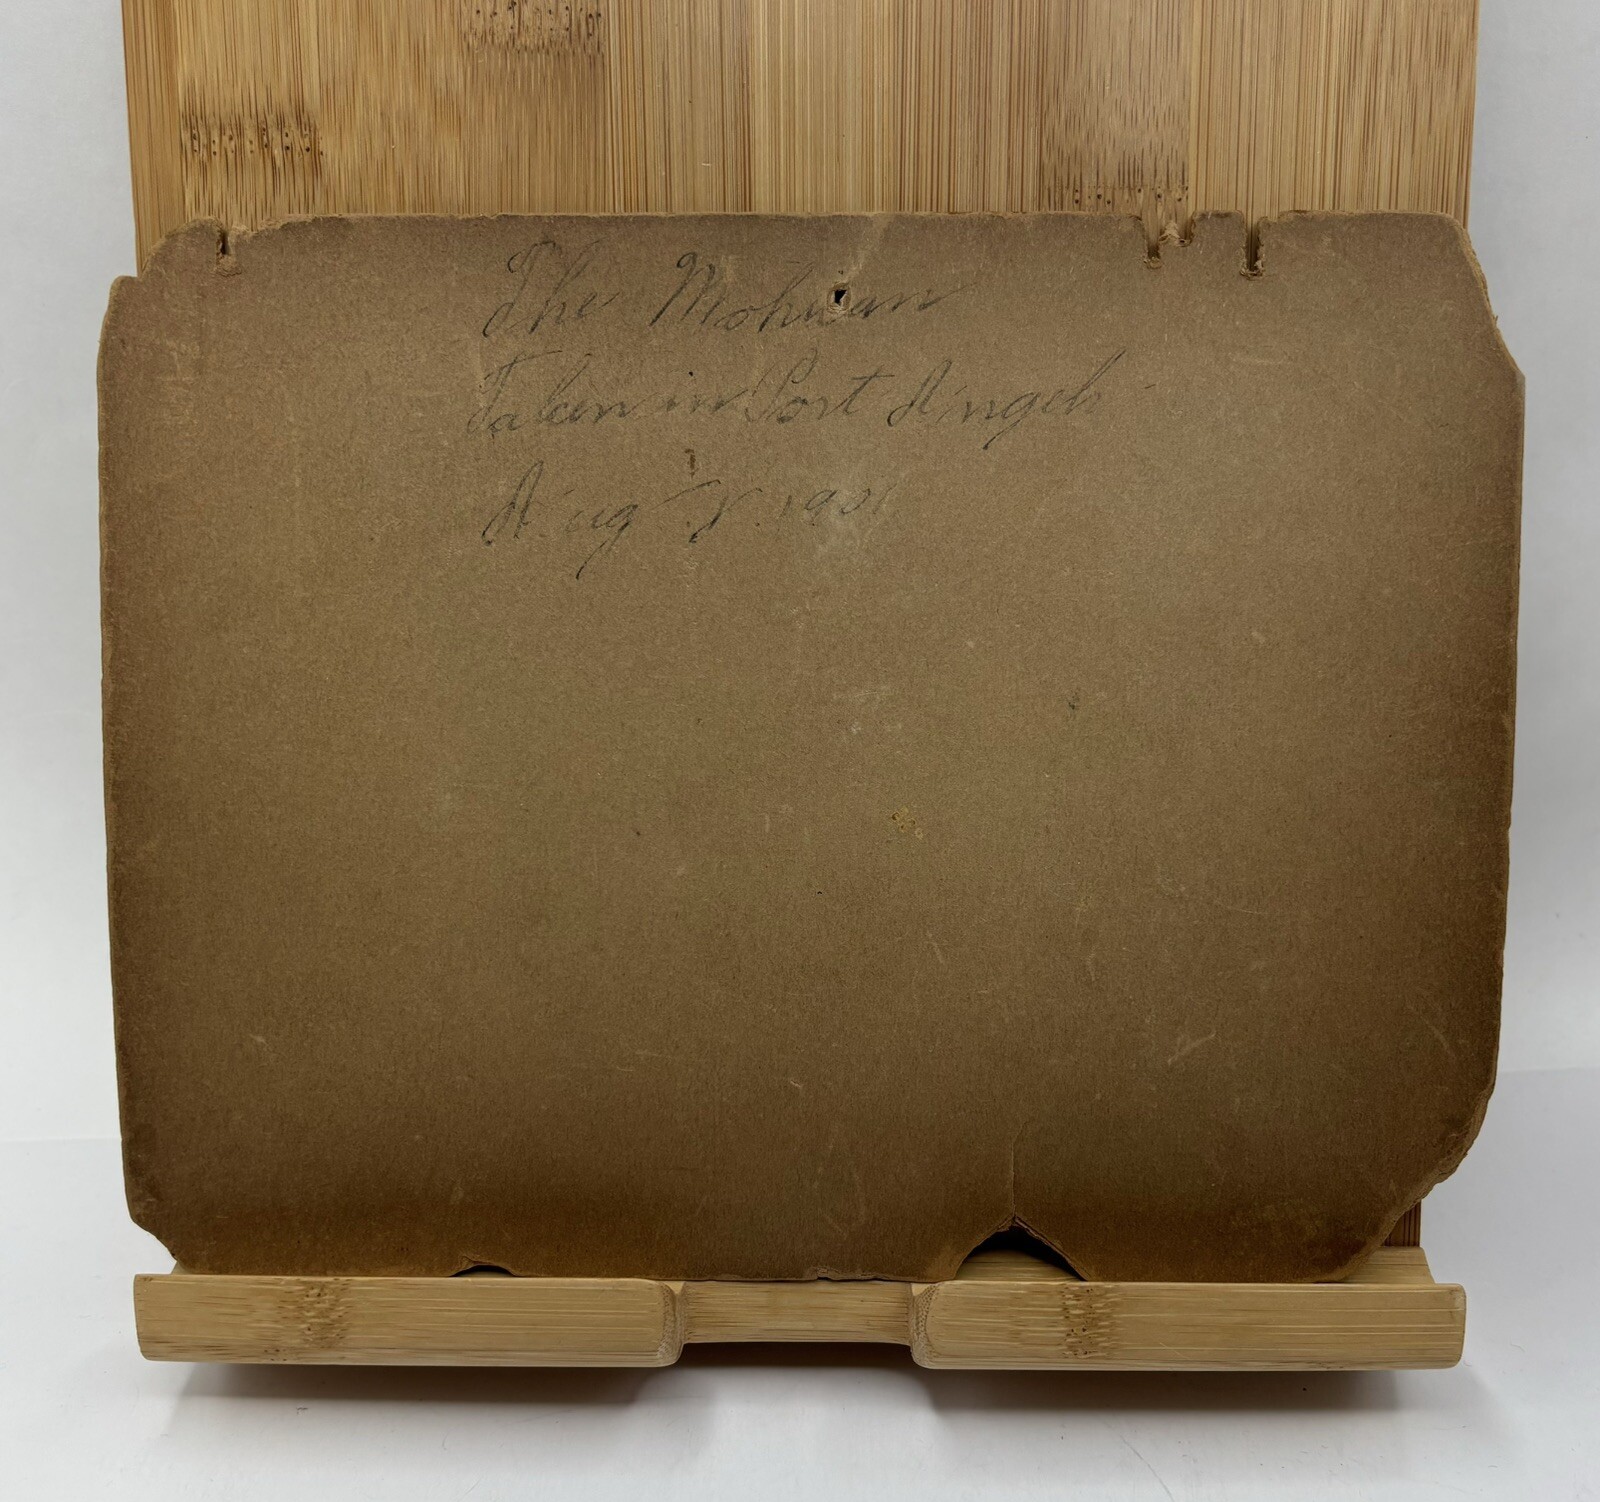 The Mohican
Taken in Port Angels
Aug 1901